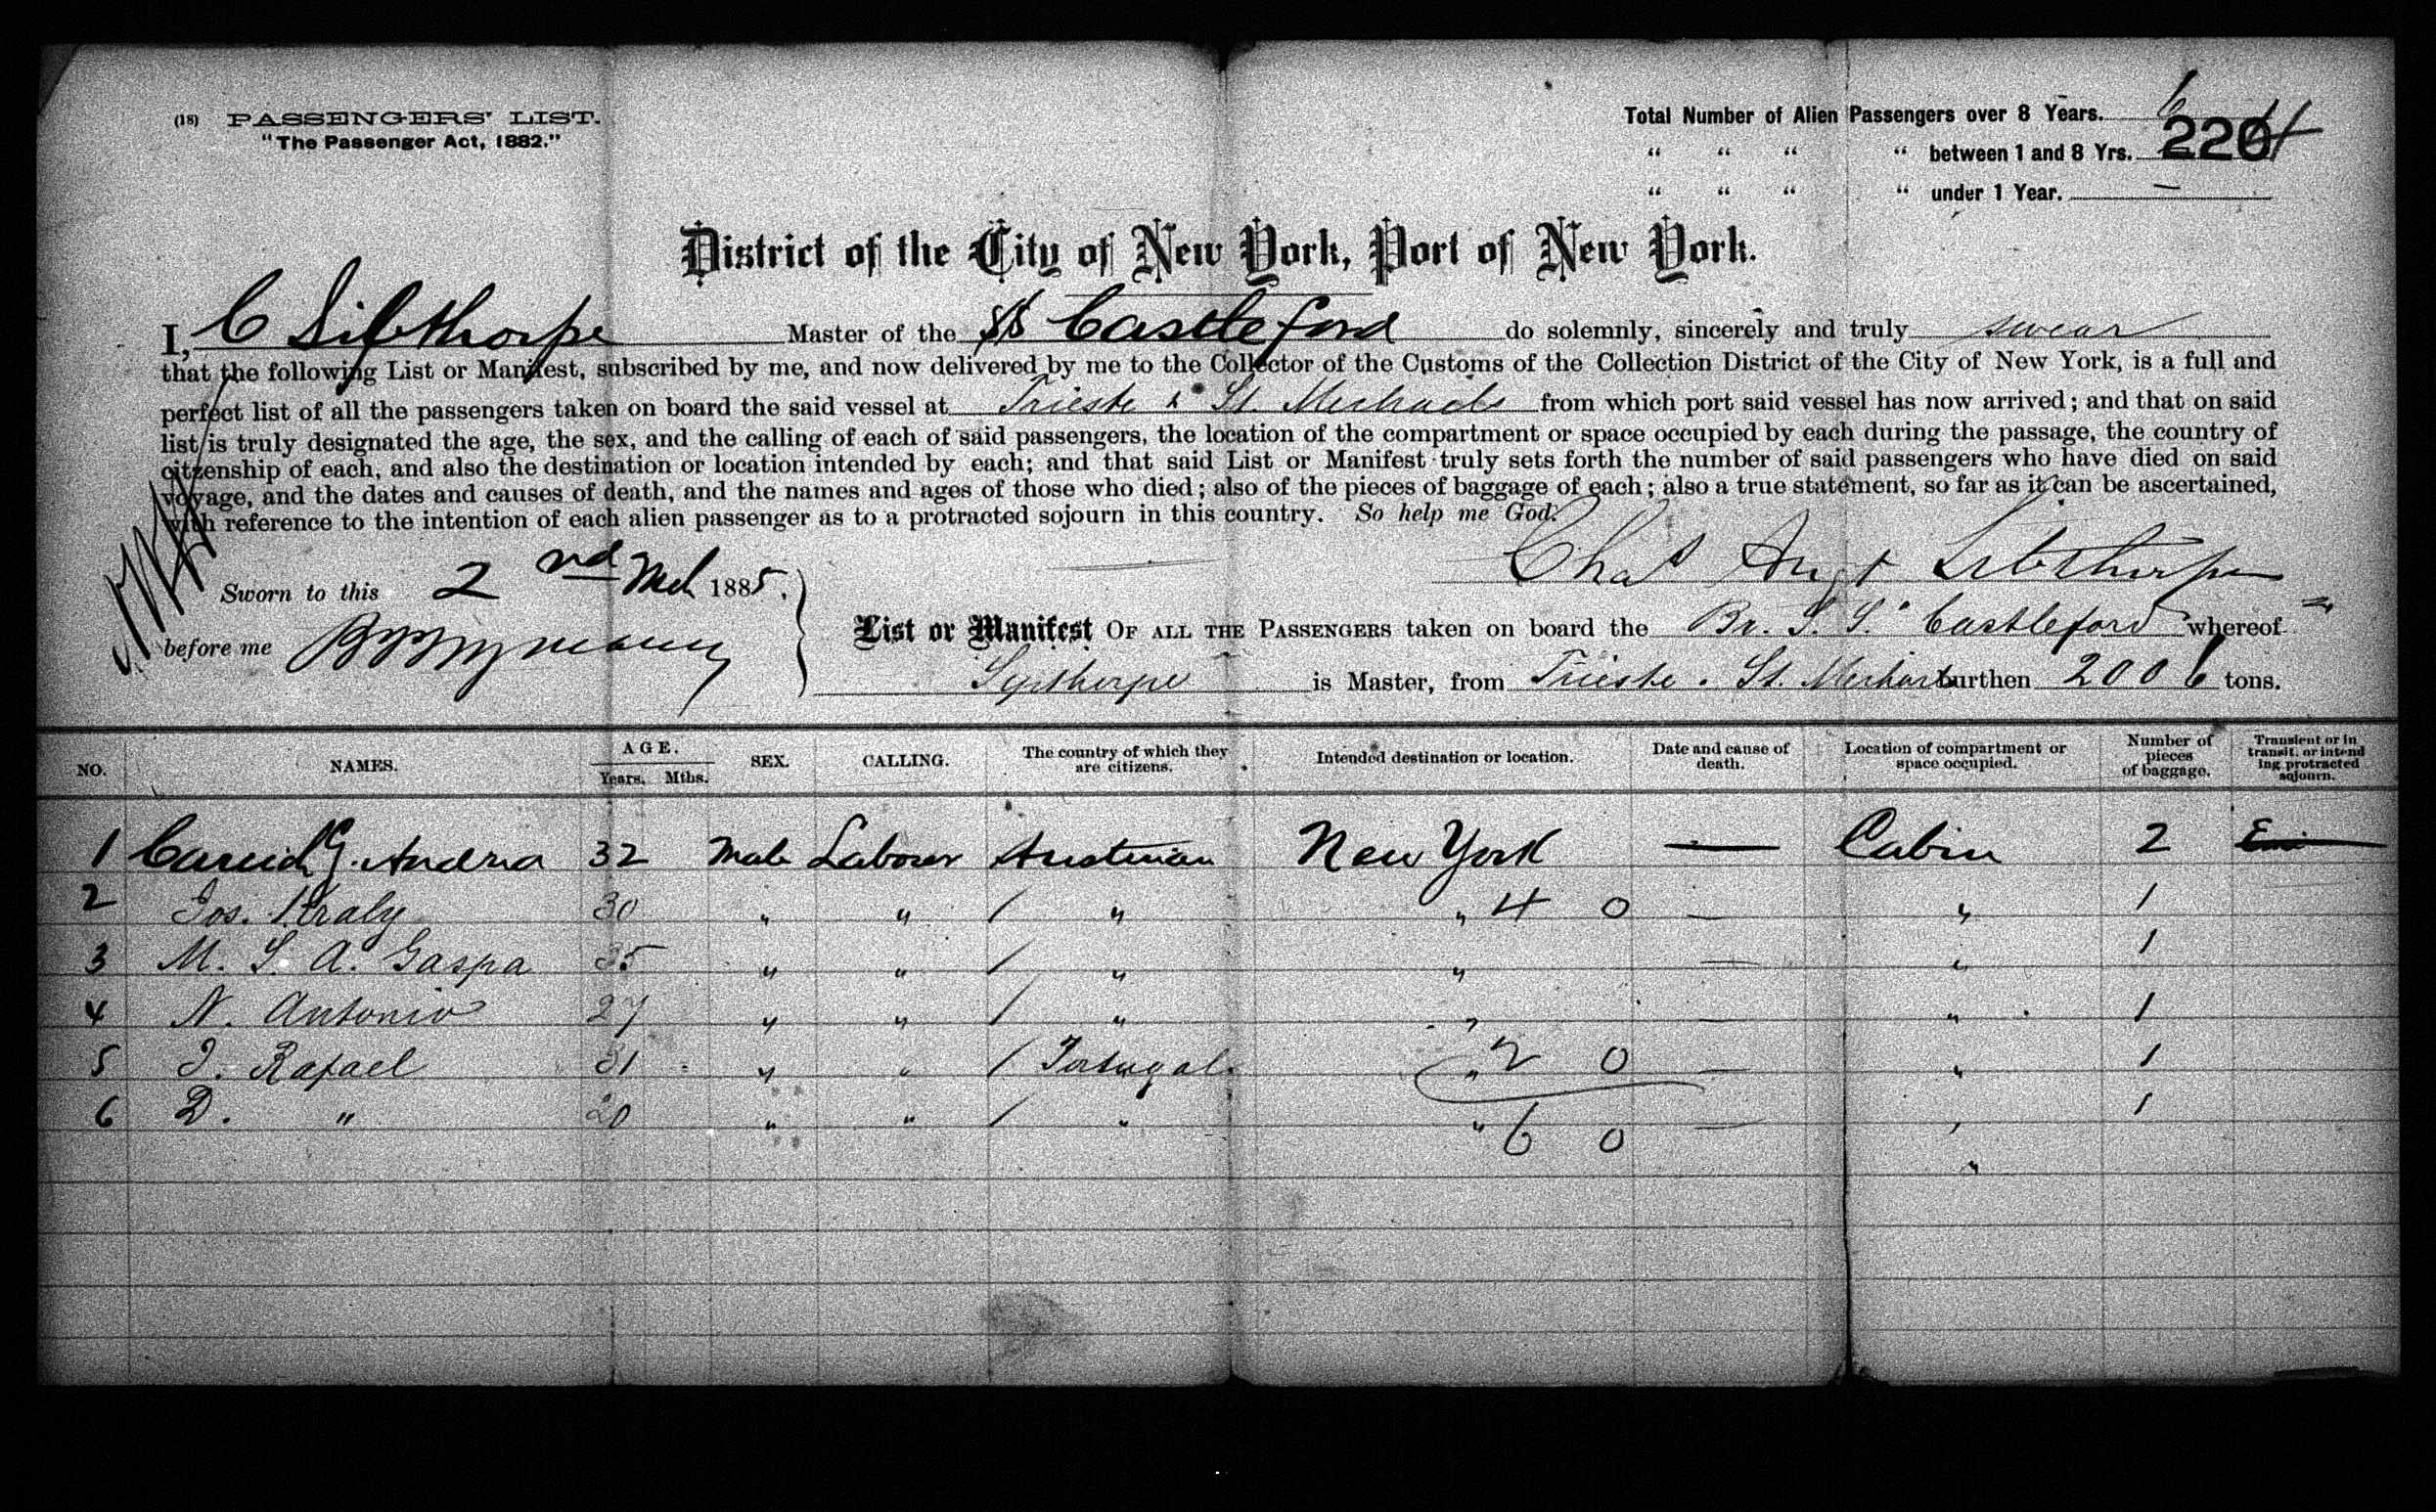 (18) PASSENGERS' LIST.
"The Passenger Act, 1882."
Total Number of Alien Passengers over 8 Years. 6
" " " " between 1 and 8 Yrs. 226
" " " " under 1 Year. —
District of the City of New York, Port of New York.
I, C Sibthorpe Master of the SS Castleford do solemnly, sincerely and truly swear
that the following List or Manifest, subscribed by me, and now delivered by me to the Collector of the Customs of the Collection District of the City of New York, is a full and
perfect list of all the passengers taken on board the said vessel at Trieste & St. Michaels from which port said vessel has now arrived; and that on said
list is truly designated the age, the sex, and the calling of each of said passengers, the location of the compartment or space occupied by each during the passage, the country of
citizenship of each, and also the destination or location intended by each; and that said List or Manifest truly sets forth the number of said passengers who have died on said
voyage, and the dates and causes of death, and the names and ages of those who died; also of the pieces of baggage of each; also a true statement, so far as it can be ascertained,
with reference to the intention of each alien passenger as to a protracted sojourn in this country. So help me God.
Chas Augt Sibthorpe
Sworn to this 2nd Mch 1885.
before me
List or Manifest OF ALL THE PASSENGERS taken on board the Br. S. S. Castleford whereof
Sypthorpe is Master, from Trieste . St. burthen 2006 tons.
NO. NAMES. AGE. Years. Mths. SEX. CALLING. The country of which they are citizens. Intended destination or location. Date and cause of death. Location of compartment or space occupied. Number of pieces of baggage. Transient or in transit, or intending protracted sojourn.
1 G. Andrea 32 Male Laborer Austrian New York — Cabin 2
2 Jos. Kraly 30 " " / " " 4 0 — " 1
3 M. S. A. Gaspa 35 " " / " " — " 1
4 N. Antonio 27 " " / " " — " 1
5 J. Rafael 31 " " / Portugal " 2 0 — " 1
6 D. " 20 " " / " " 6 0 — " 1
"